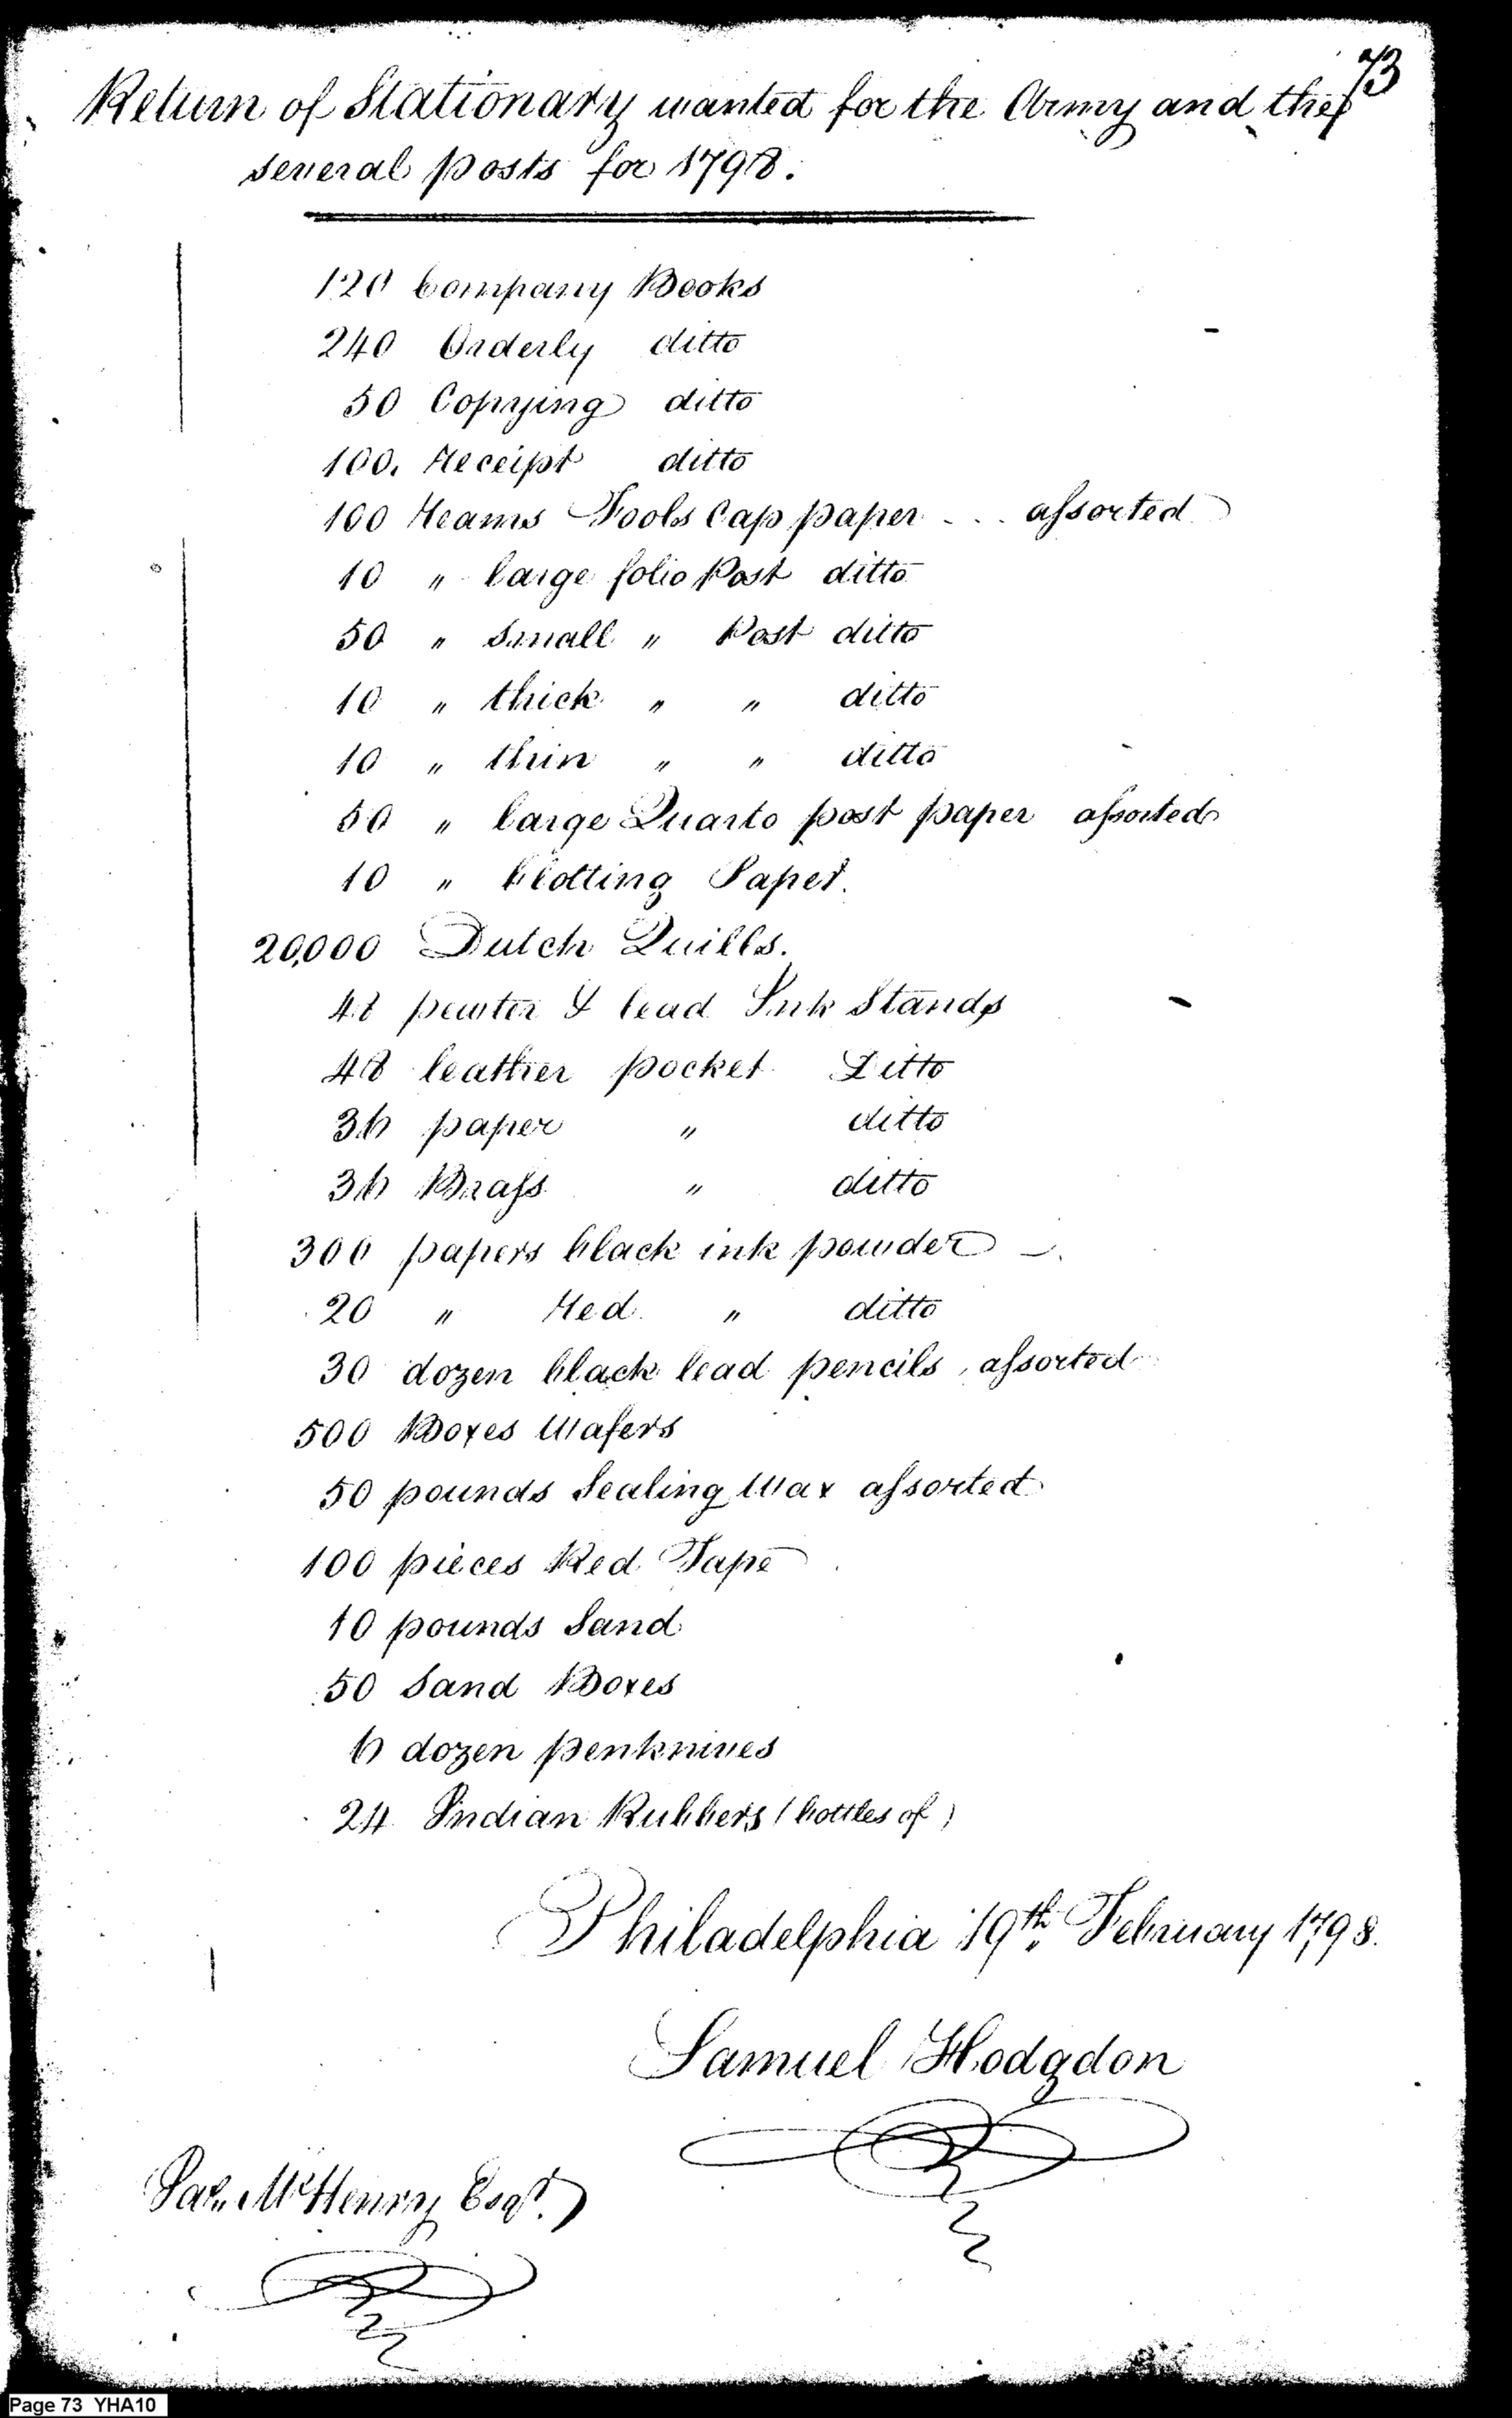 73
Return of Stationary wanted for the Army and the
several posts for 1798.
120 Company Books
240 Orderly ditto
50 Copying ditto
100. Receipt ditto
100 Reams Fools Cap paper - . . assorted
10 " large folio Post ditto
50 " Small " Post ditto
10 " thick " " ditto
10 " thin " " ditto
50 " large Quarto post paper assorted
10 " blotting Paper.
20,000 Dutch Quills.
48 pewter & lead Ink Stands
48 leather pocket Ditto
36 paper " ditto
36 Brass " ditto
300 papers black ink powder -.
20 " Red " ditto
30 dozen black lead pencils, assorted
500 Boxes Wafers
50 pounds Sealing Wax assorted
100 pieces Red Tape
10 pounds Sand
50 Sand Boxes
6 dozen penknives
24 Indian Rubbers (bottles of)
Philadelphia 19th February 1798.
Samuel Hodgdon
Jas. McHenry Esqr.
Page 73 YHA10